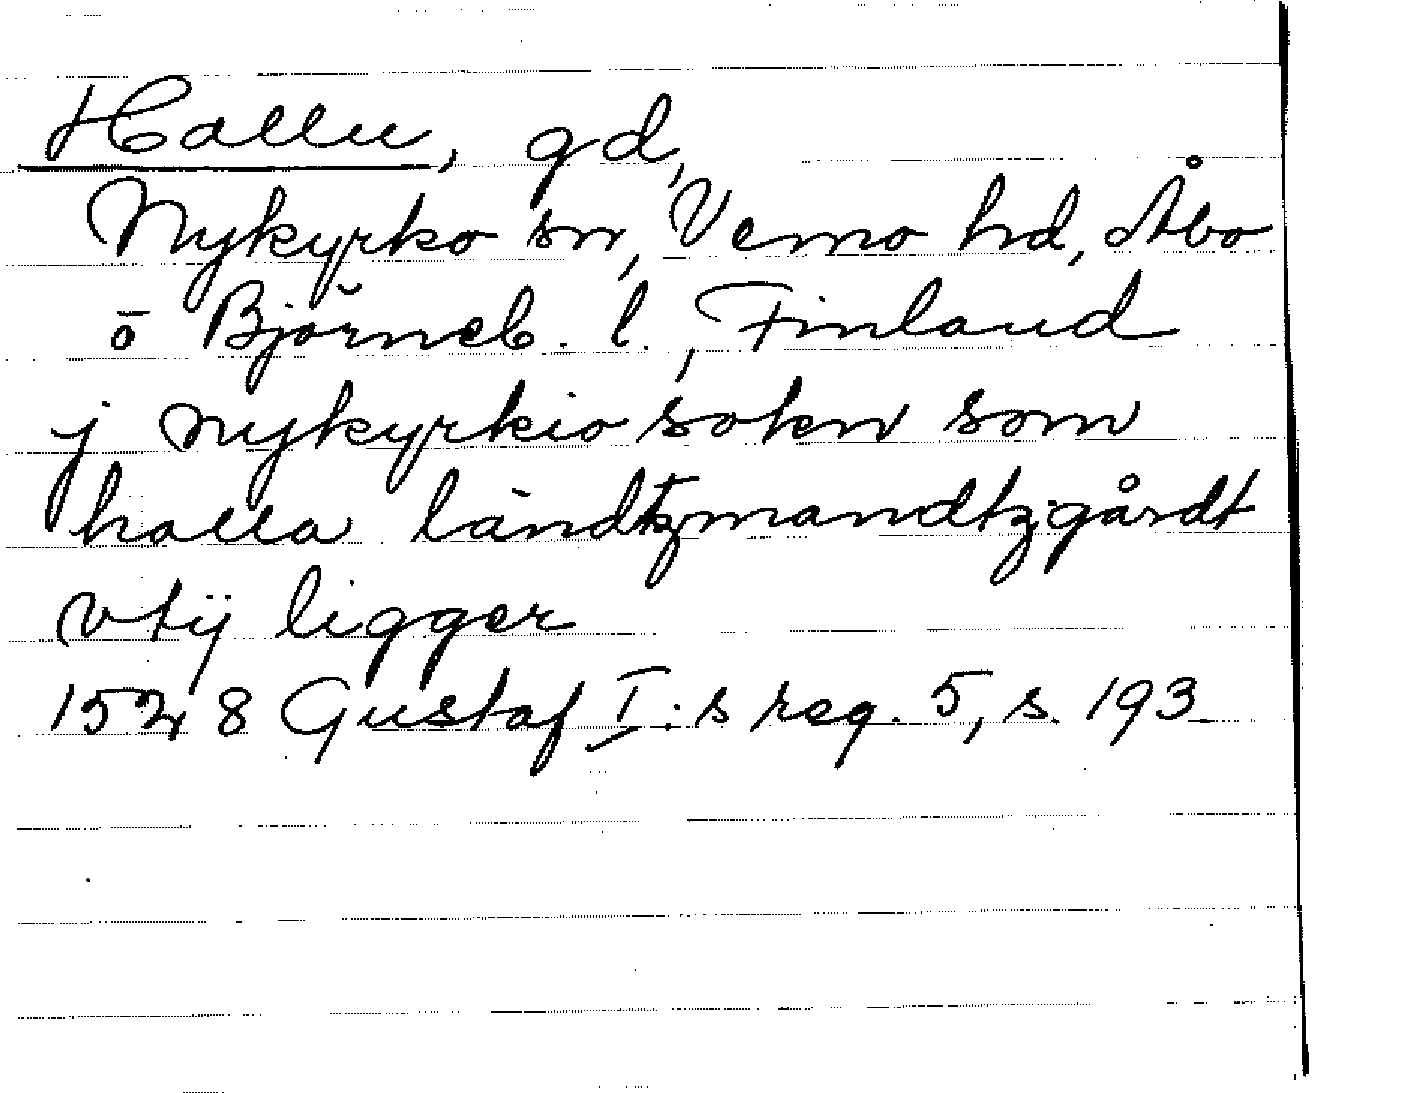 Hallu, gd,
Nykyrko sn, Vemo hd, Åbo
o Björneb. l., Finland
j nykyrkio sokn som
halla ländtzmandtzgårdt
vtij ligger
1528 Gustaf I:s reg. 5, s. 193